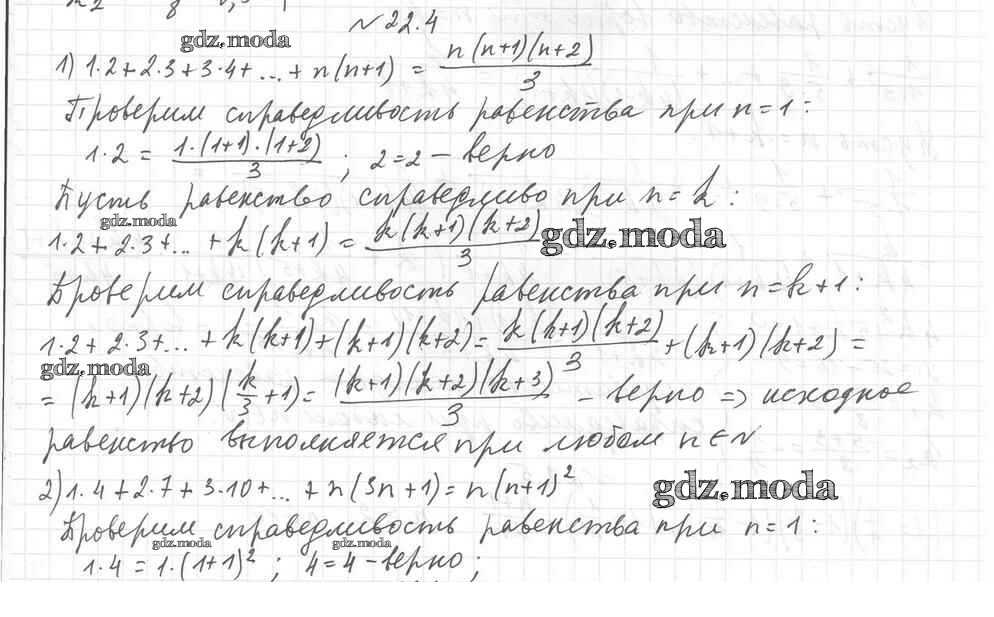 №22.4
gdz.moda
1) 1·2+2·3+3·4+...+n(n+1) = n(n+1)(n+2)/3
Проверим справедливость равенства при n=1:
1·2 = 1·(1+1)·(1+2)/3 ; 2=2 – верно
Пусть равенство справедливо при n=k:
gdz.moda
1·2+2·3+...+k(k+1) = k(k+1)(k+2)/3 gdz.moda
Проверим справедливость равенства при n=k+1:
1·2+2·3+...+k(k+1)+(k+1)(k+2)= k(k+1)(k+2)/3 +(k+1)(k+2)=
gdz.moda
= (k+1)(k+2)(k/3+1)= (k+1)(k+2)(k+3)/3 – верно => исходное
равенство выполняется при любом n∈N
2) 1·4+2·7+3·10+...+n(3n+1)=n(n+1)² gdz.moda
Проверим справедливость равенства при n=1:
gdz.moda gdz.moda
1·4=1·(1+1)²; 4=4–верно;